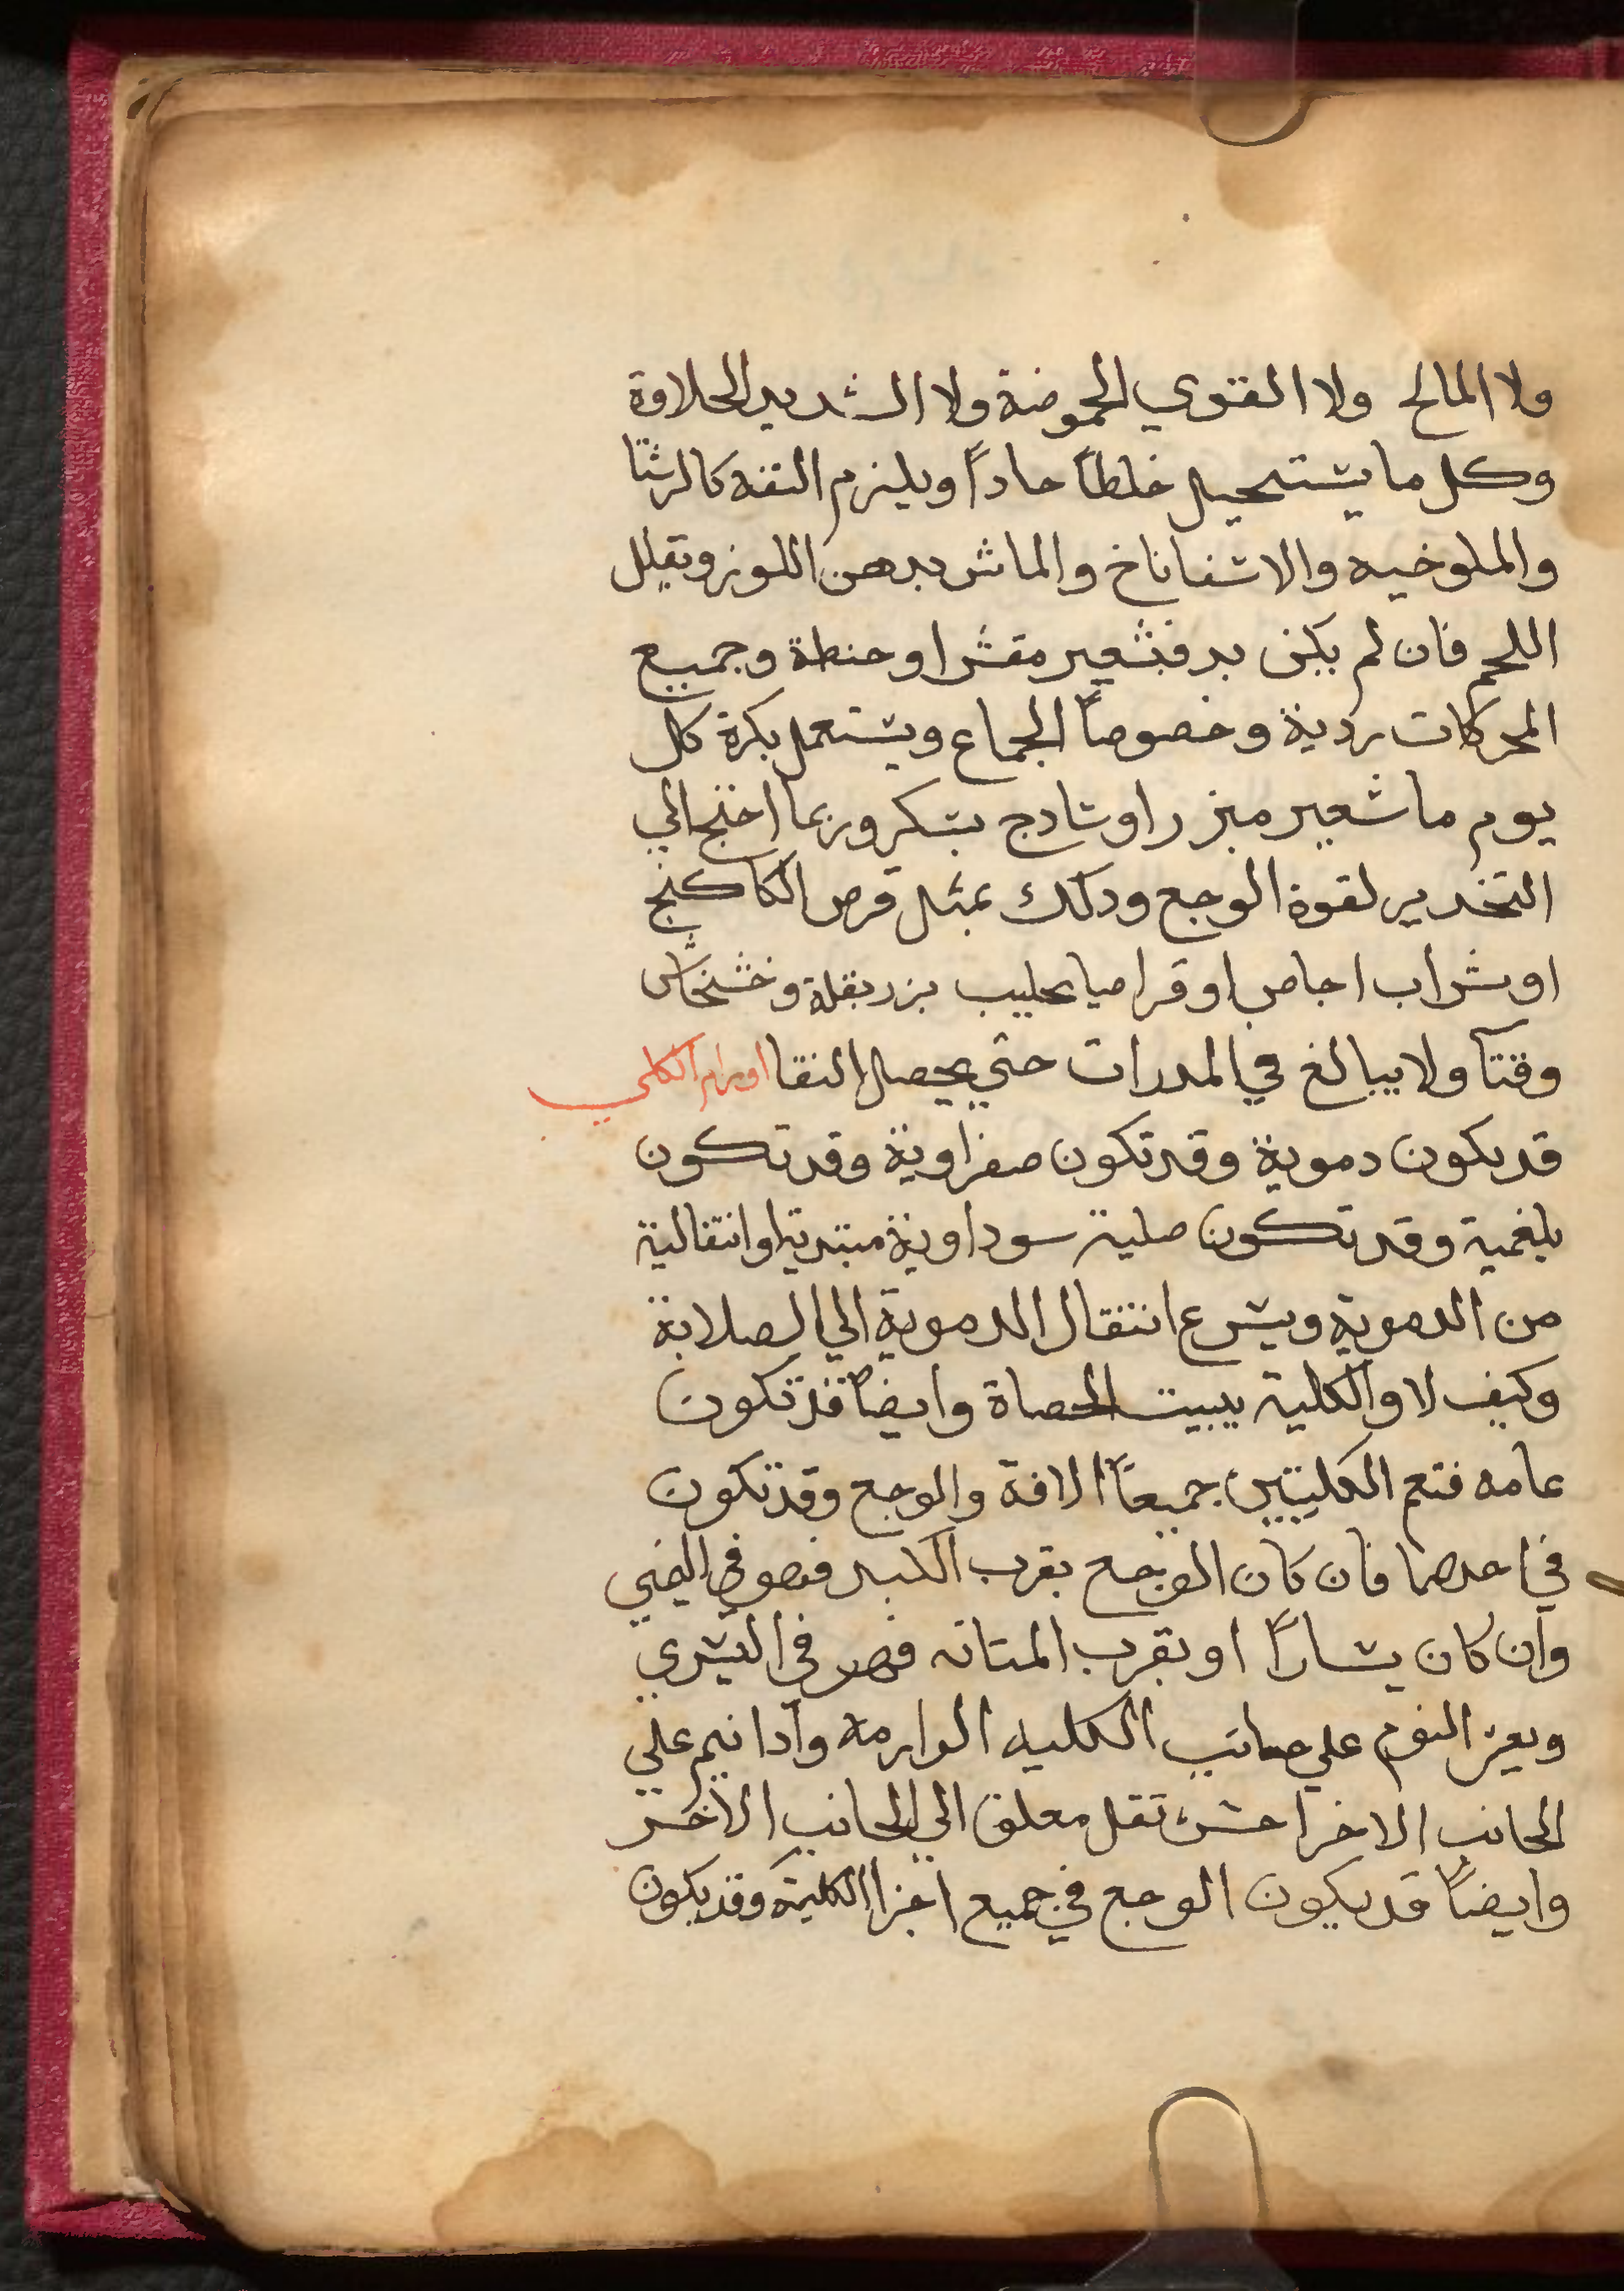 ولا المالح ولا القوي الحموضة ولا الشديد الحلاوة
وكل ما يشتحيل خلطاً حاداً ويلزم التفه كالرشتا
والملوخيه والاشفاناخ والماش بدهن اللوز ويقلل
اللحم فان لم يكن بد فبشعير مقشر او حنطة وجميع
المحركات ردية وخصوصاً الجماع ويشتعمل بكرة كل
يوم ما شعير مبزر او شادج بشكر وربما احتج الي
التخدير لقوة الوجع ودلك بمثل قرص الكاكنج
او بشراب اجاص او قراصيا بحليب بزر بقلة وخشخاش
وقتاً ولا يبالغ في المدرات حتي يحصل النقا اورام الكلي
قد يكون دموية وقد تكون صفراوية وقد تكون
بلغمية وقد تكون صلبة سوداوية مبتدية او انتقالية
من الدموية ويشرع انتقال الدموية الي الصلابة
وكيف لا والكلية ببيت الحصاة وايضاً قد تكون
عامه فتعم الكليتين جميعاً الافة والوجع وقد تكون
في احدهما فان كان الوجع بقرب الكبد فهو في اليمني
وان كان يشاراً او بقرب المتانه فهو في اليشري
ويعز النوم علي جانب الكليه الوارمه وادا نيم علي
الجانب الاخر احش تقل معلق الي الجانب الاخر
وايضاً قد يكون الوجع في جميع اجزا الكلية وقد يكون